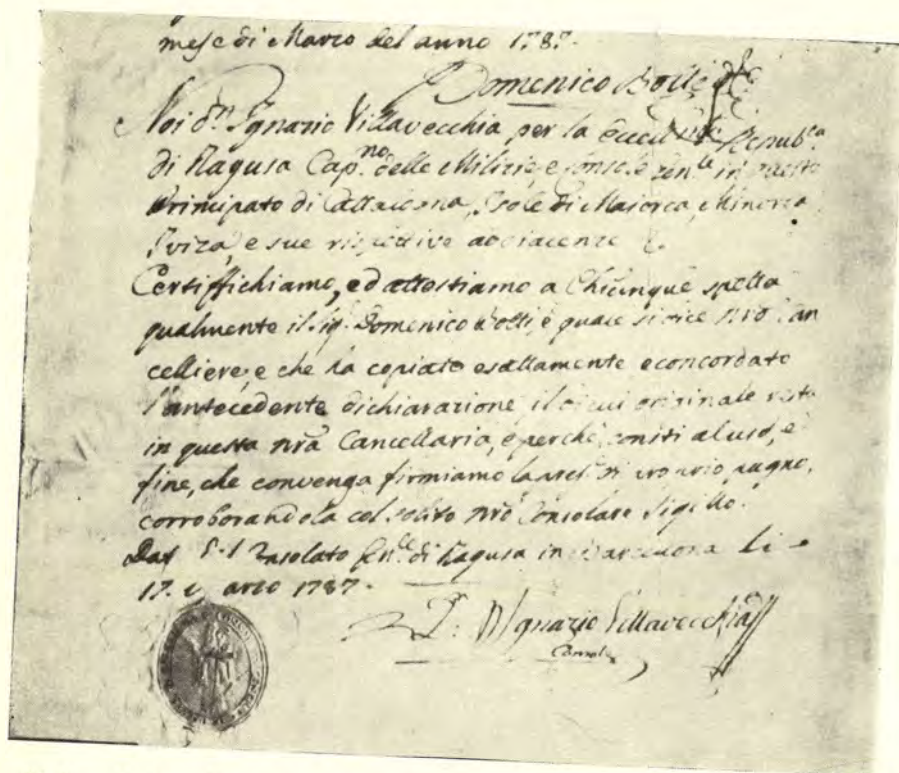 mese di Marzo del anno 1787.
Domenico Bolli
Noi dn. Ignazio Villavecchia per la Repub.ca
di Ragusa Cap.no delle Milizie, e Console Gen.le in questo
Principato di Cattalogna, Isole di Maiorca, Minorca
Iviza, e sue rispettive adiacenze
Certiffichiamo, ed attestiamo a Chiunque spetta
qualmente il Sig. Domenico Bolli, è quale si dice nr̃o Can
celliere, e che ha copiato esattamente e concordato
l'antecedente dichiarazione il di cui originale resta
in questa nr̃a Cancellaria, e perchè consti al uso, e
fine, che convenga firmiamo la di proprio pugno,
corroborandola col solito nr̃o Consolare Sigillo.
Dat nsolato Gen.le di Ragusa in Barcelona li
17. arzo 1787.
Dn Ignazio Villavecchia
Consol